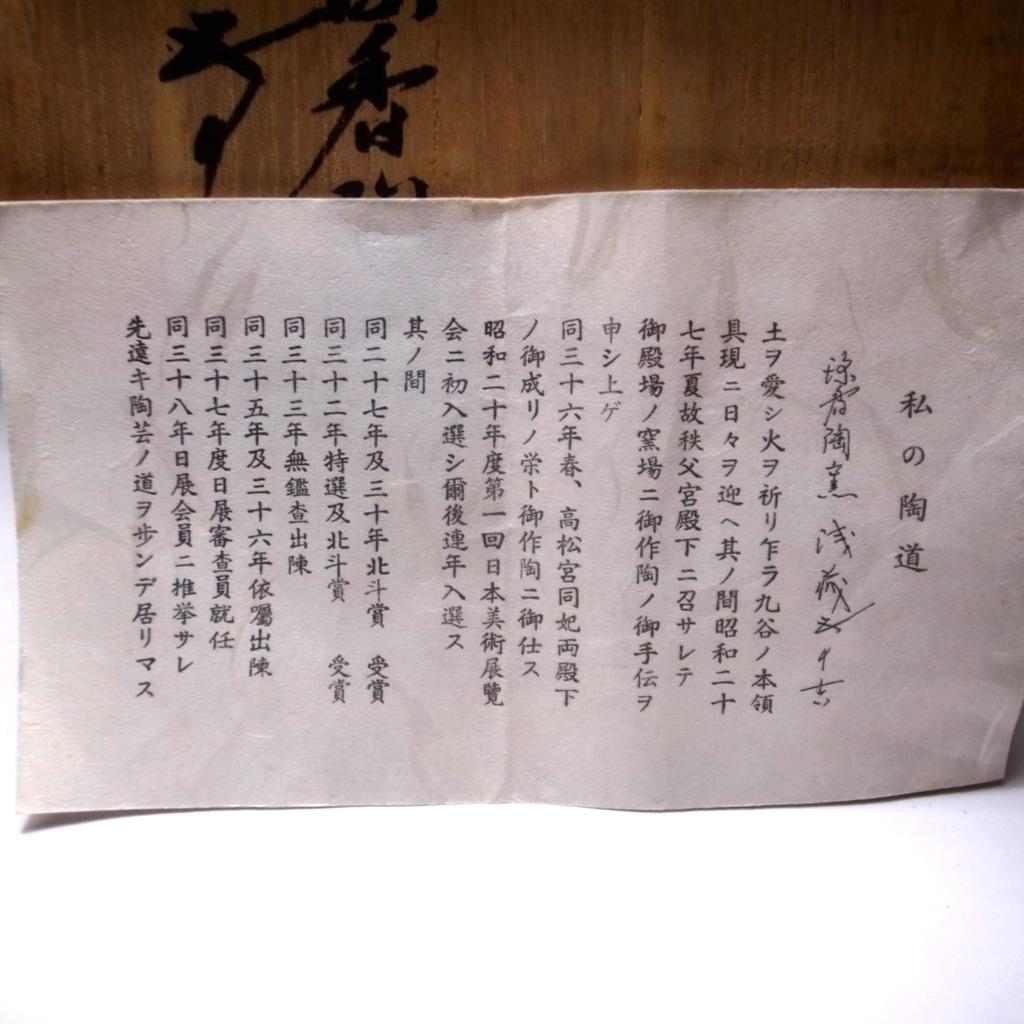 私の陶道
陶窯 浅蔵五十吉
土ヲ愛シ火ヲ祈リ乍ラ九谷ノ本領
具現ニ日々ヲ迎ヘ其ノ間昭和二十
七年夏故秩父宮殿下ニ召サレテ
御殿場ノ窯場ニ御作陶ノ御手伝ヲ
申シ上ゲ
同三十六年春、高松宮同妃両殿下
ノ御成リノ栄ト御作陶ニ御仕ス
昭和二十年度第一回日本美術展覽
会ニ初入選シ爾後連年入選ス
其ノ間
同二十七年及三十年北斗賞 受賞
同三十二年特選及北斗賞 受賞
同三十三年無鑑査出陳
同三十五年及三十六年依囑出陳
同三十七年度日展審査員就任
同三十八年日展会員ニ推挙サレ
先遠キ陶芸ノ道ヲ歩ンデ居リマス
香
五十